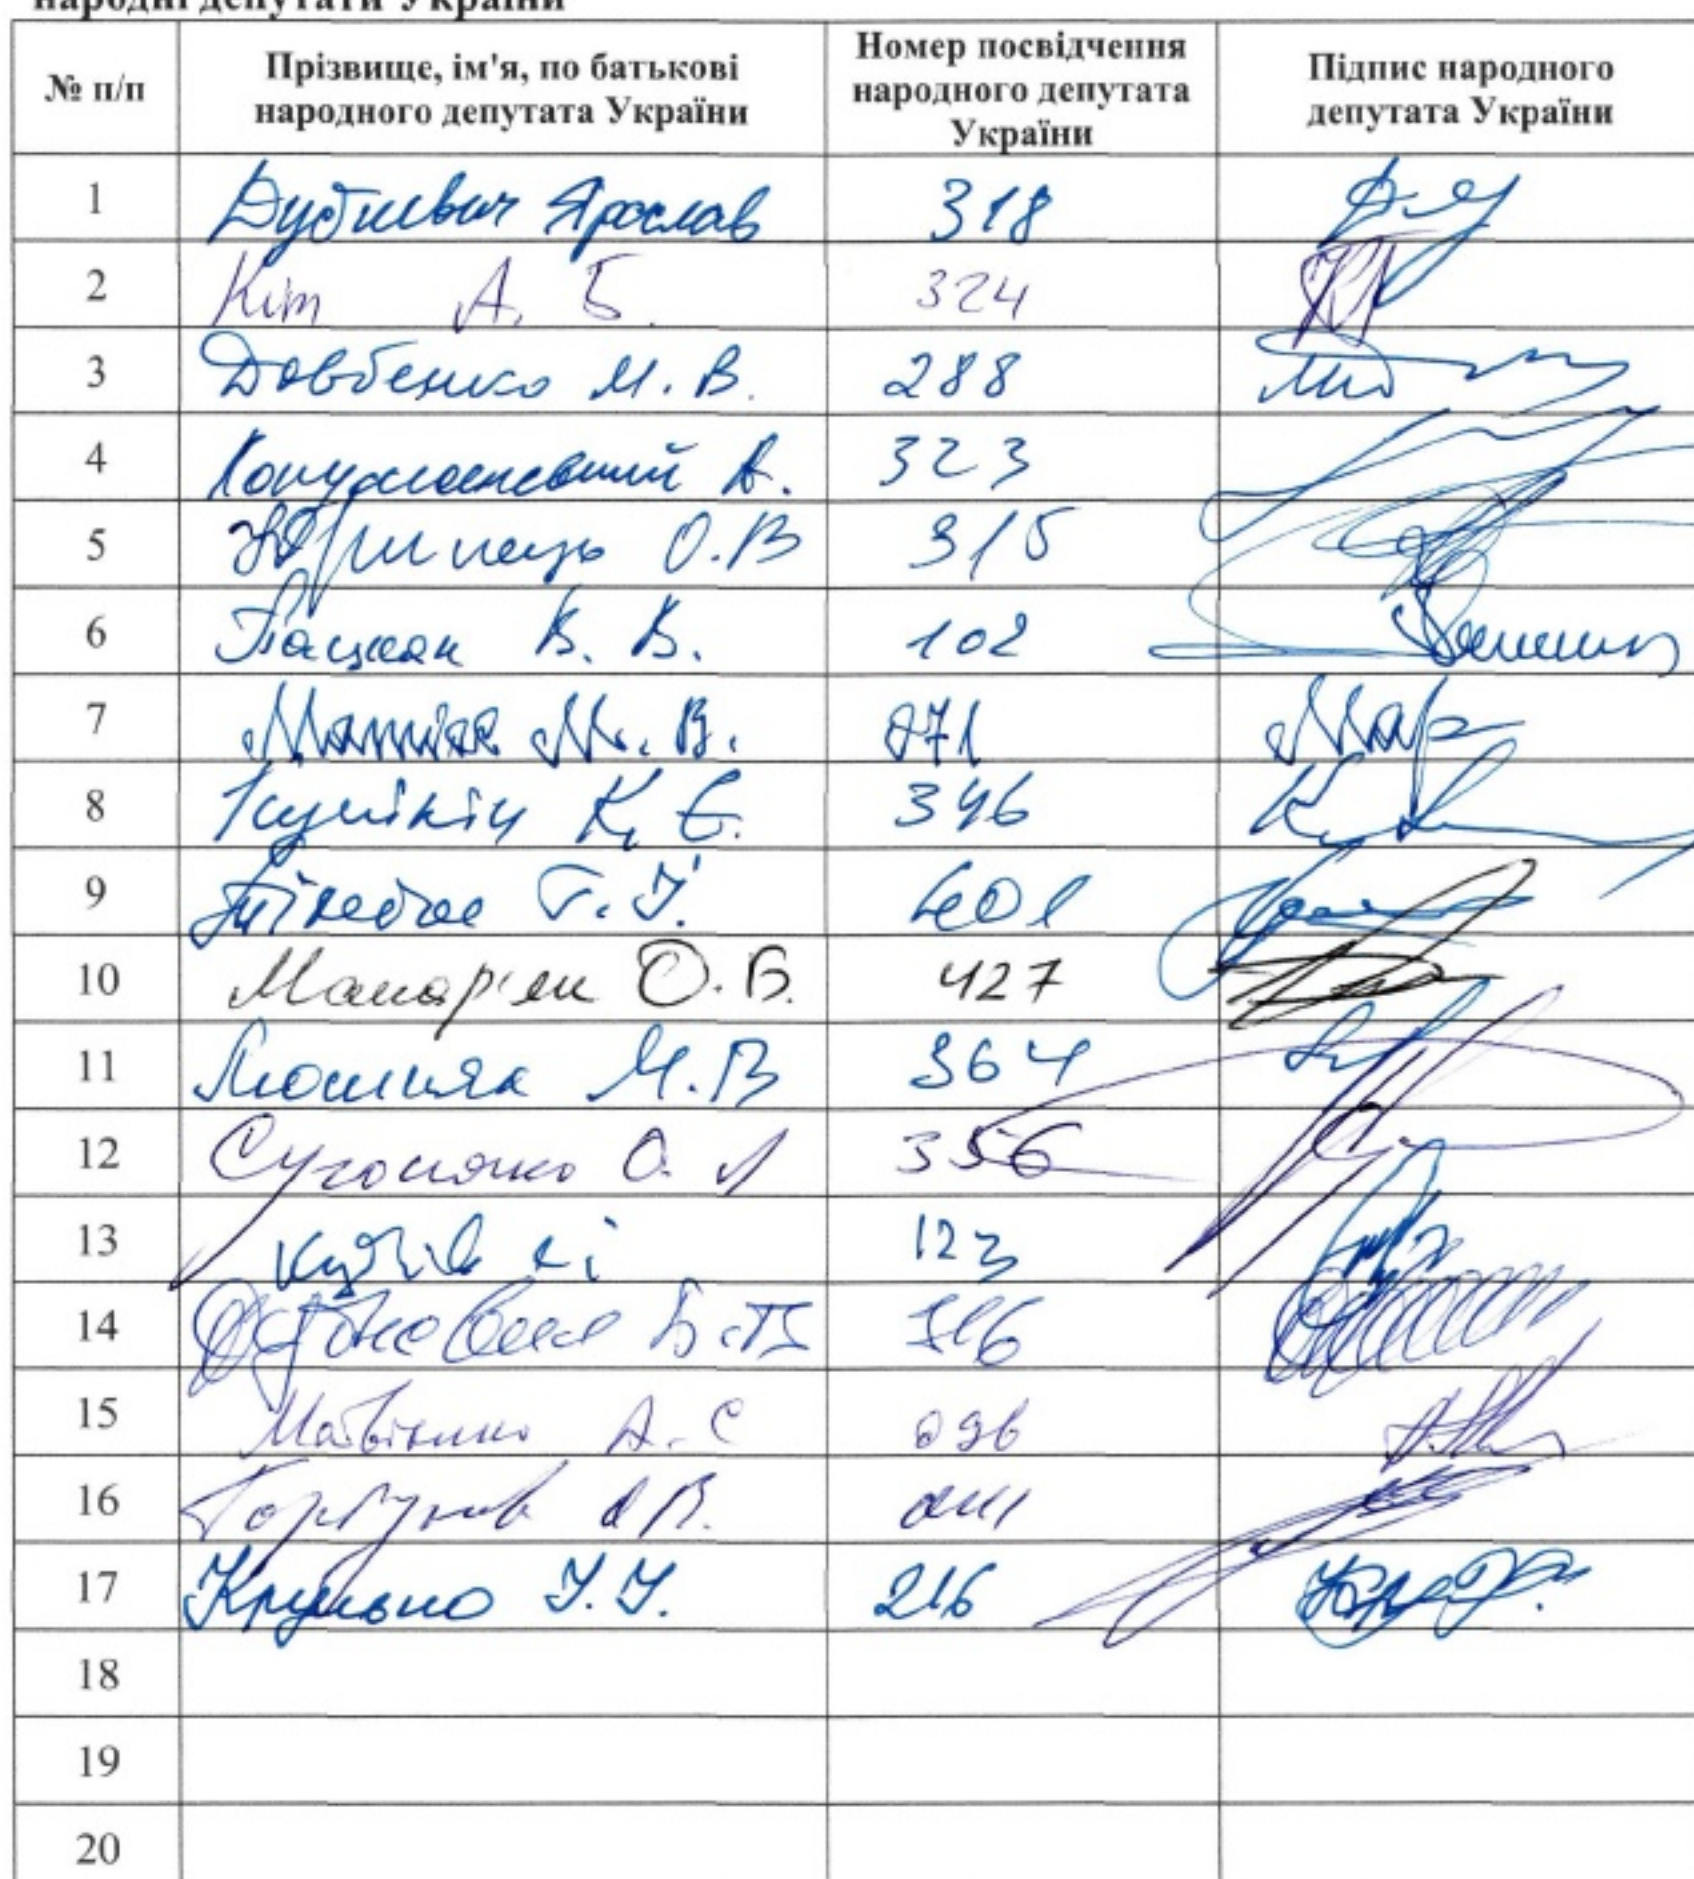 народні депутати України
№ п/п
Прізвище, ім'я, по батькові
народного депутата України
Номер посвідчення
народного депутата
України
Підпис народного
депутата України
1 Дубневич Ярослав 318
2 Кіт А. Б. 324
3 Довбенко М. В. 288
4 А. 323
5 Юринець О.В 315
6 Пацкан В. В. 102
7 Матвієнко М. В.
8 Куйбіда К. Є. 346
9 Г. Й. 401
10 Макар'ян О. Б. 427
11 Люшняк М. В 364
12 Сугоняко О. Л 356
13 123
14
15 Матвієнко А. С 096
16 Горбунов О В.
17 Крулько І. І. 216
18
19
20